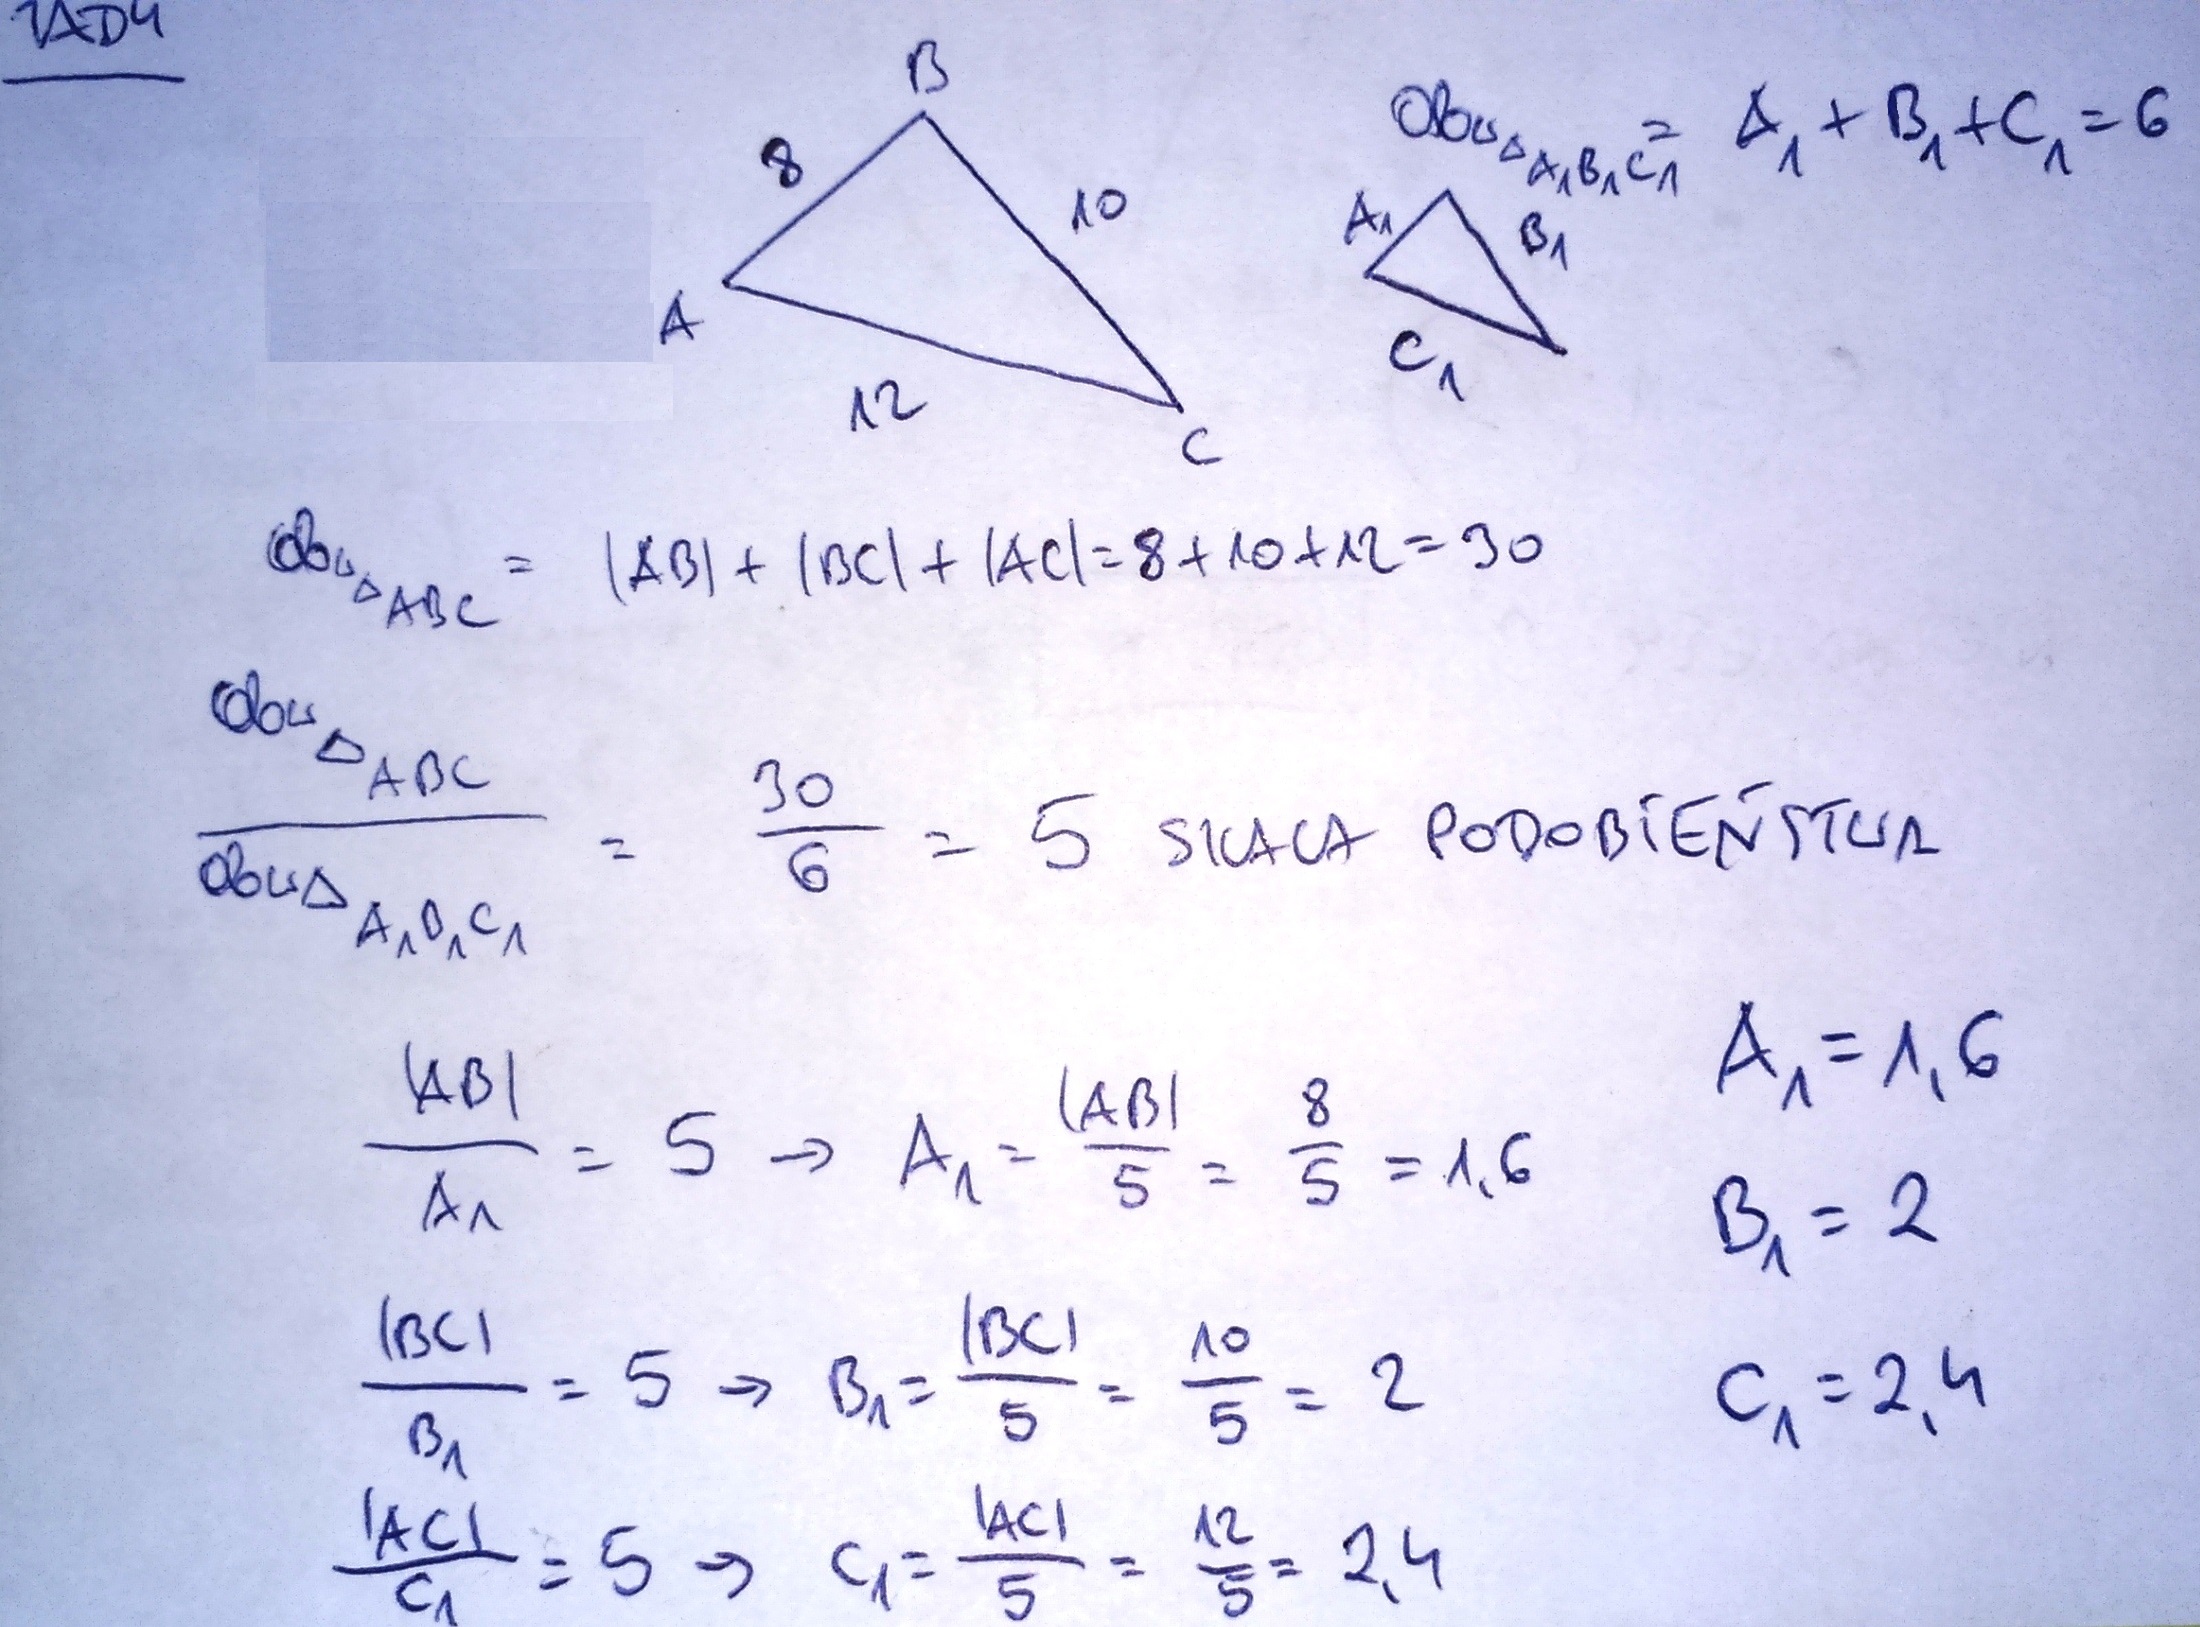 ZAD4
B
8
10
A
12
C
Obw△A₁B₁C₁ = A₁ + B₁ + C₁ = 6
A₁
B₁
C₁
Obw△ABC = |AB| + |BC| + |AC| = 8 + 10 + 12 = 30
Obw△ABC / Obw△A₁B₁C₁ = 30/6 = 5 SKALA PODOBIEŃSTWA
|AB|/A₁ = 5 → A₁ = |AB|/5 = 8/5 = 1,6
A₁ = 1,6
B₁ = 2
|BC|/B₁ = 5 → B₁ = |BC|/5 = 10/5 = 2
C₁ = 2,4
|AC|/C₁ = 5 → C₁ = |AC|/5 = 12/5 = 2,4